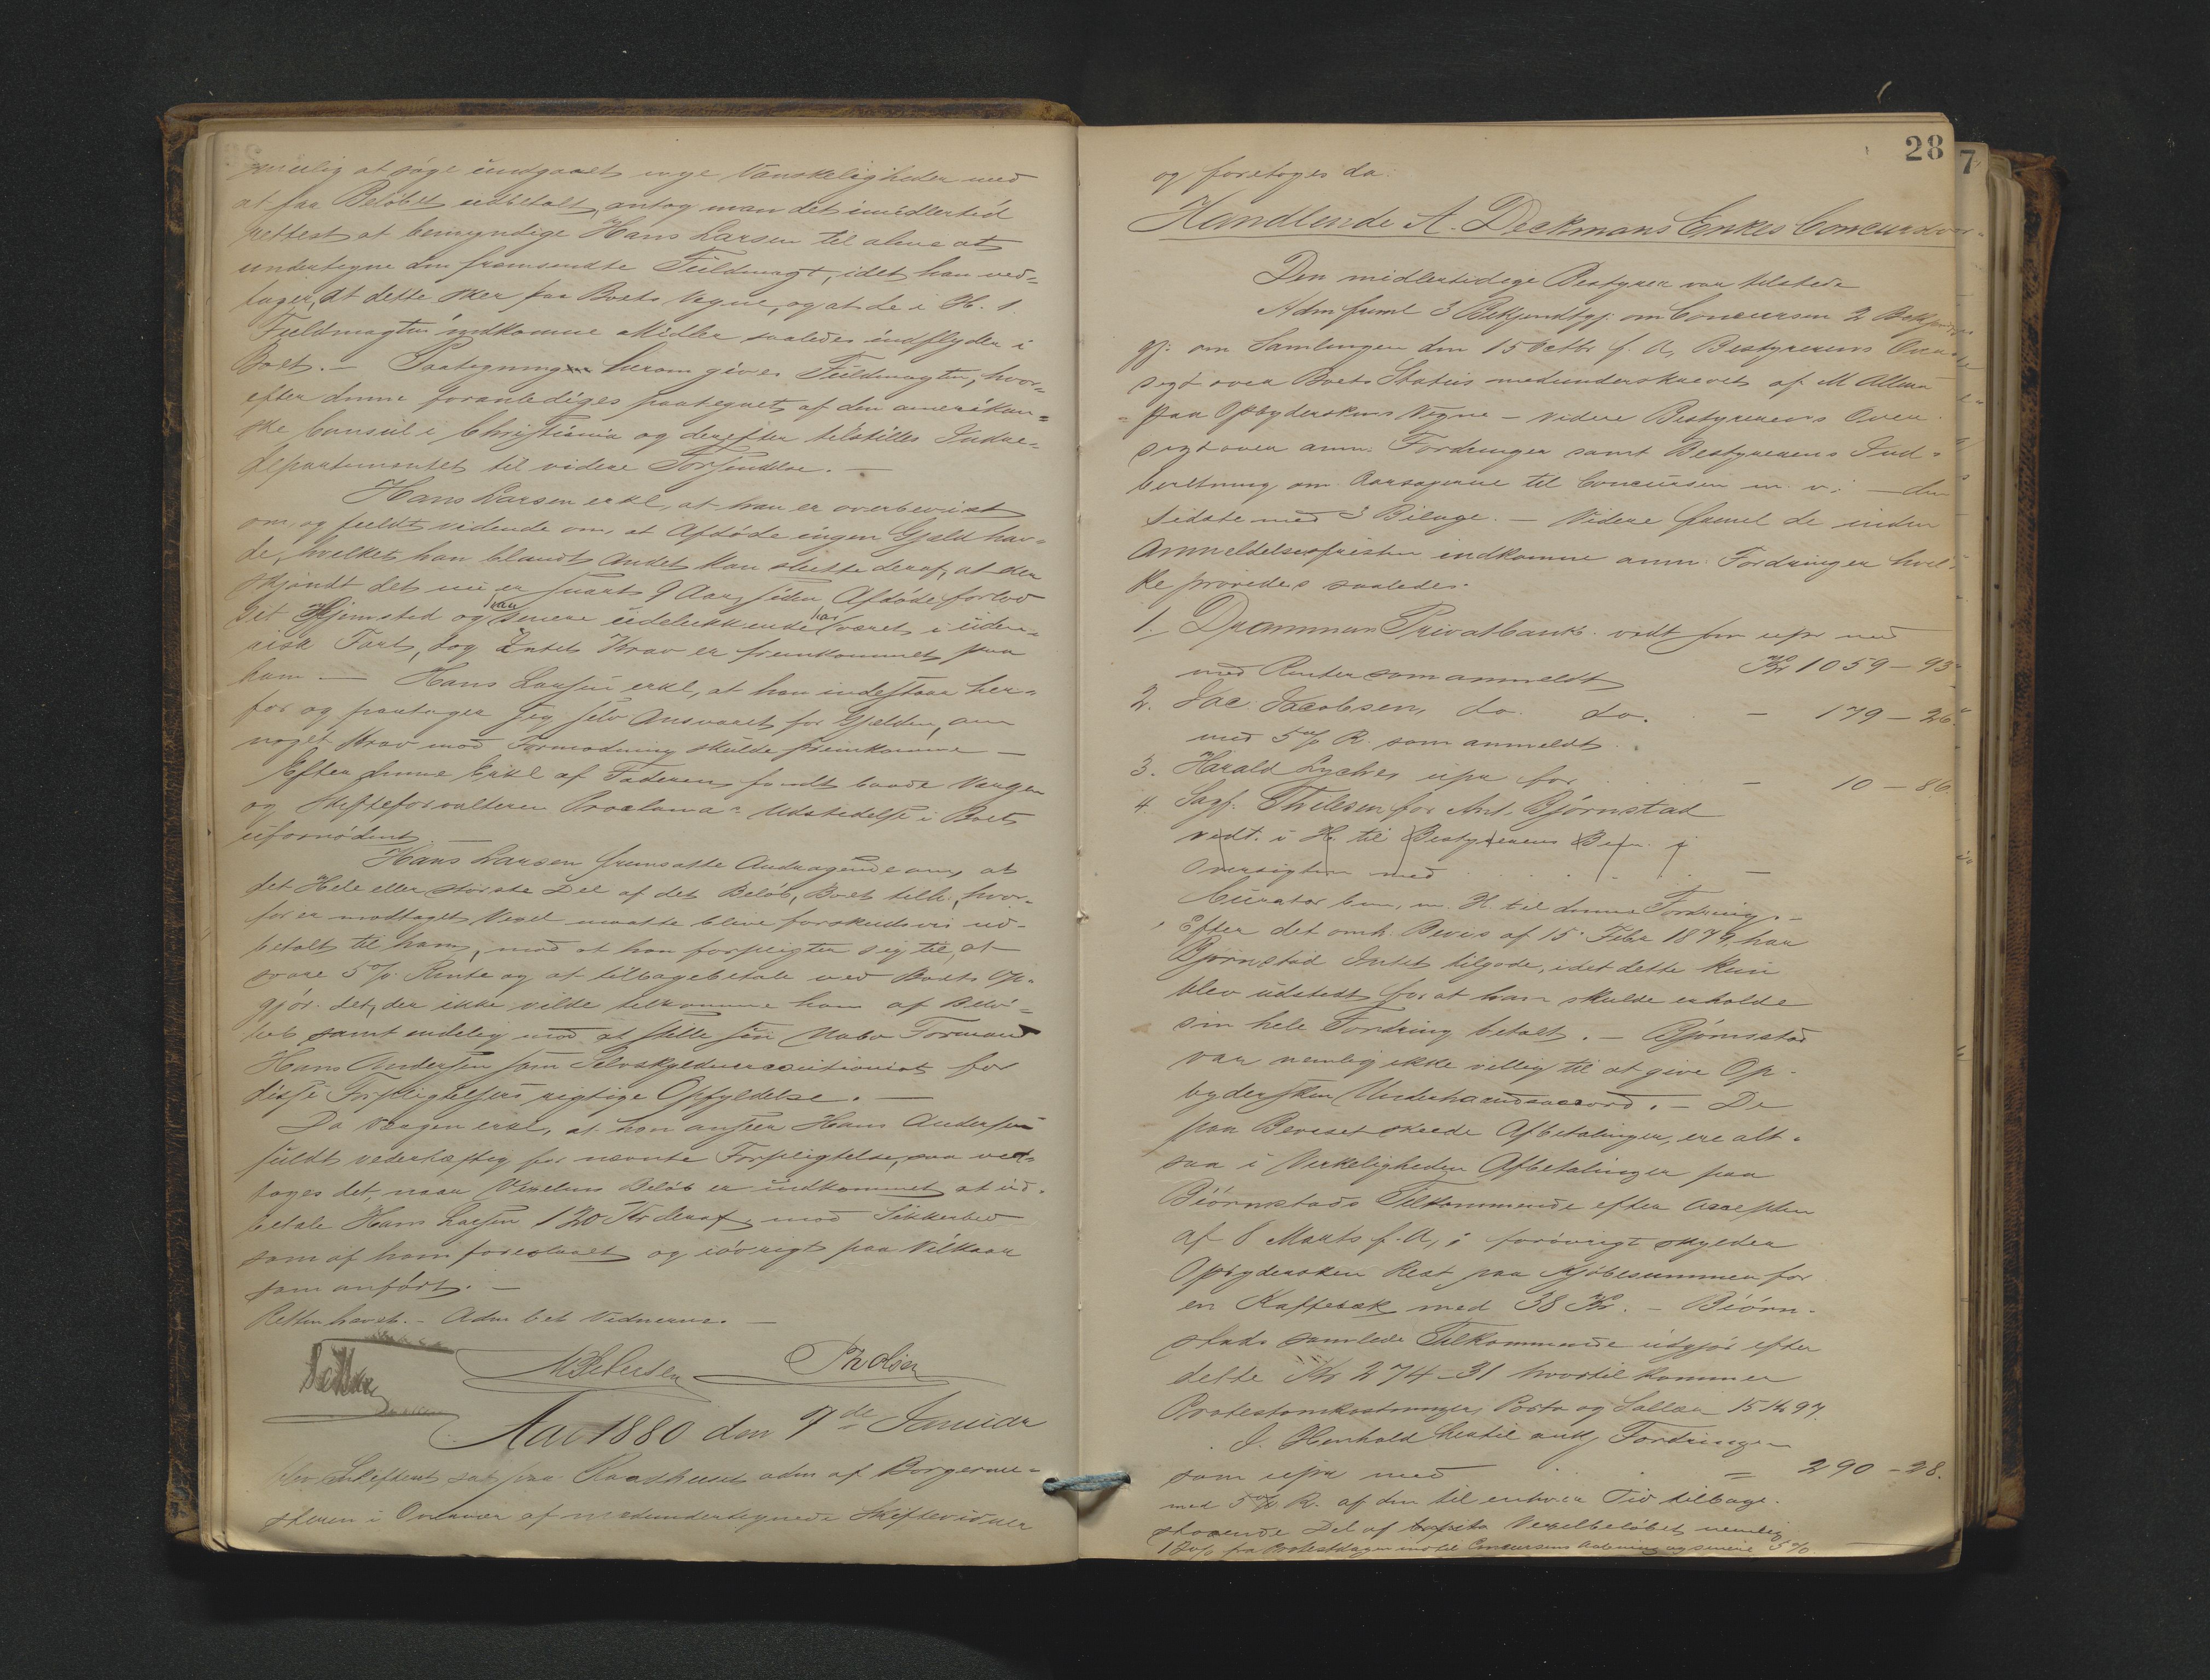 at søge undgaaet nye Vanskeligheder med
at faa Beløbet udbetalt, antog man det imidlertid
rettest at bemyndige Hans Larsen til alene at
undertegne den fremsendte Fuldmagt, idet han ved-
tager, at dette sker paa Boets Vegne, og at de i H. t.
Fuldmagten indkomne Midler saaledes indflyder i
Boet. — Paategning herom gives Fuldmagten, hvor-
efter denne foranlediges paategnet af den amerikan-
ske Consul i Christiania og derefter tilstilles Indre-
departementet til videre Forsendelse. —
Hans Larsen erkl, at han er overbevist
om og fuldt vidende om, at Afdøde ingen Gjæld hav-
de, hvilket han blandt Andet kan slutte deraf, at der
skjøndt det nu er snart 9 Aar, siden Afdøde forlod
sit Hjemsted og han senere udelukkende har været i uden-
risk Fart, dog Intet Krav er fremkommet paa
ham — Hans Larsen erkl, at han indestaar her-
for og paatager sig selv Ansvaret for Gjælden, om
noget Krav mod Formodning skulde fremkomme —
Efter denne Erkl af Faderen fandt baade Værgen
og Skifteforvalteren Proclama's Udstedelse i Boet
ufornødent
Hans Larsen fremsatte Andragende om, at
det Hele eller største Del af det Beløb, Boet tilk., hvor-
for er modtaget Vexel maatte blive forskudsvis ud-
betalt til ham, mod at han forpligter sig til at
svare 5 % Rente og at tilbagebetale ved Boets Op-
gjør det, der ikke vilde tilkomme ham af Belø-
bet samt endelig mod at stille sin Nabo Formand
Hans Andersen som Selvskyldnercautionist for
disse Forpligtelsers rigtige Opfyldelse. —
Da Værgen erkl, at han anseer Hans Andersen
fuldt vederhæftig for nævnte Forpligtelse, saa ved-
toges det, naar Vexelens Beløb er indkommet at ud-
betale Hans Larsen 120 Kr deraf mod Sikkerhed
som af ham foreslaaet og iøvrigt paa Vilkaar
som anført. —
Retten hævet. — Adm bet Vidnerne. —
Aar 1880 den 7de Januar
blev Skifteret sat paa Raadhuset adm af Borgerme-
steren i Overvær af medundertegnede Skiftevidner
28
7
og foretoges da:
Handlende A. Deckmans Enkes Concursbo
Den midlertidige Bestyrer var tilstede
Adm freml 3 Bekjendtgj: om Concursen 2 Bekjendt-
gj: om Samlingen den 15 Octbr f. A, Bestyrerens Over-
sigt over Boets Status medunderskrevet af
paa Opbyderskens Vegne — videre Bestyrerens Over-
sigt over anm. Fordringer samt Bestyrerens Ind-
beretning om Aarsagerne til Concursen m. v. — den
sidste med 3 Bilage. — Videre freml de inden
Anmeldelsesfristen indkomne anm. Fordringer hvil-
ke prøvedes saaledes.
1. Drammens Privatbank vedt som upr med
med Renter som anmeldt Kr 1059 — 93
2. Jac. Jacobsen, do. do. — 179 — 26.
med 5 % R. som anmeldt.
3. Harald Lyches upr for — 10 — 86.
4. Sagf. Thilesen for Ant. Bjørnstad
vedt. i H. til Bestyrerens Bem. i
Oversigten med —
Curator bem, m. H. til denne Fordring. —
Efter det omh. Bevis af 15 Febr 1879 har
Bjørnstad Intet tilgode, idet dette kun
blev udstedt for at han skulde erholde
sin hele Fordring betalt. — Bjørnstad
var nemlig ikke villig til at give Op-
bydersken Underhaandsaccord. — De
paa Beviset skeede Afbetalinger, ere alt-
saa i Virkeligheden Afbetalinger paa
Bjørnstads Tilkommende efter Accepten
af 8 Marts f. A, i forøvrigt skylder
Opbydersken Rest paa Kjøbesummen for
en Kaffesæk med 38 Kr. — Bjørn-
stads samlede Tilkommende udgjør efter
dette Kr 274-31 hvortil kommer
Protestomkostninger, Porto og Sallær 15 Kr 97.
I Henhold hertil antog Fordringen
som upr med = 290 - 28.
med 5 % R. af den til enhver Tid tilbage-
staaende Del af Vexelbeløbet nemlig
fra Protestdagen indtil Concursens Aabning og senere 5 %